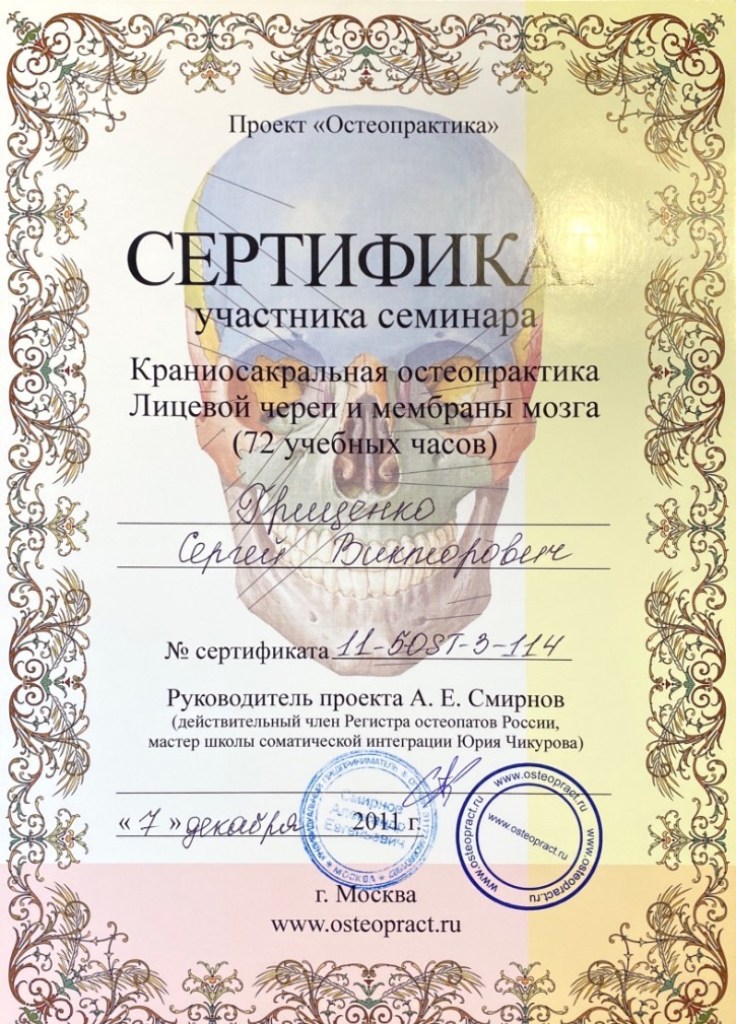 Проект «Остеопрактика»
СЕРТИФИКАТ
участника семинара
Краниосакральная остеопрактика
Лицевой череп и мембраны мозга
(72 учебных часов)
Грищенко
Сергей Викторович
№ сертификата 11-50ST-3-114
Руководитель проекта А. Е. Смирнов
(действительный член Регистра остеопатов России,
мастер школы соматической интеграции Юрия Чикурова)
«7» декабря 2011 г.
Смирнов
Евгеньевич
МОСКВА
www.osteopract.ru
www.osteopract.ru
www.osteopract.ru
www.osteopract.ru
г. Москва
www.osteopract.ru